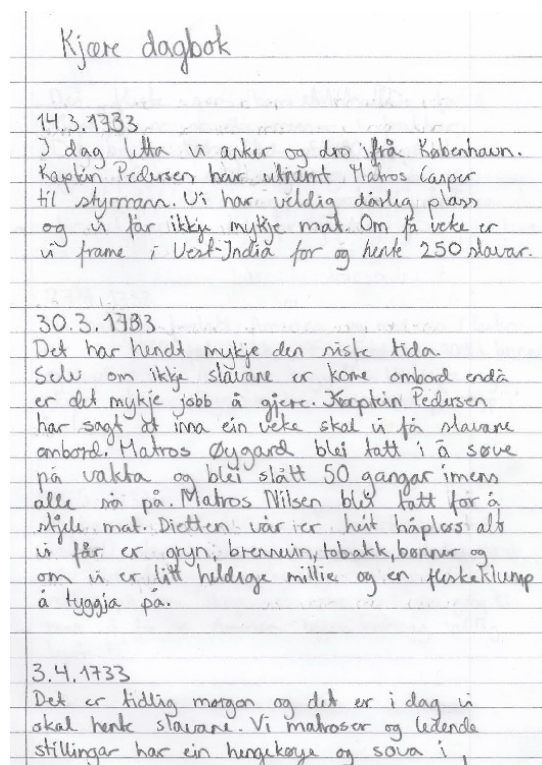 Kjære dagbok
14.3.1733
I dag letta vi anker og dro ifrå København.
Kaptein Pedersen har utnemt Matros Casper
til styrmann. Vi har veldig dårlig plass
og vi får ikkje mykje mat. Om få veke er
vi frame i Vest-India for og hente 250 slavar.
30.3.1733
Det har hendt mykje den siste tida.
Selv om ikkje slavane er kome ombord endå
er det mykje jobb å gjere. Kaptein Pedersen
har sagt at inna ein veke skal vi få slavane
ombord. Matros Øygard blei tatt i å søve
på vakta og blei slått 50 gangar imens
alle så på. Matros Nilsen blei tatt for å
stjele mat. Dietten vår er heit håpløs alt
vi får er gryn, brennvin, tobakk, bønner og
om vi er litt heldige millie og en fleskeklump
å tyggja på.
3.4.1733
Det er tidlig morgon og det er i dag vi
skal hente slavane. Vi matroser og ledende
stillingar har ein hengekøye og sova i,